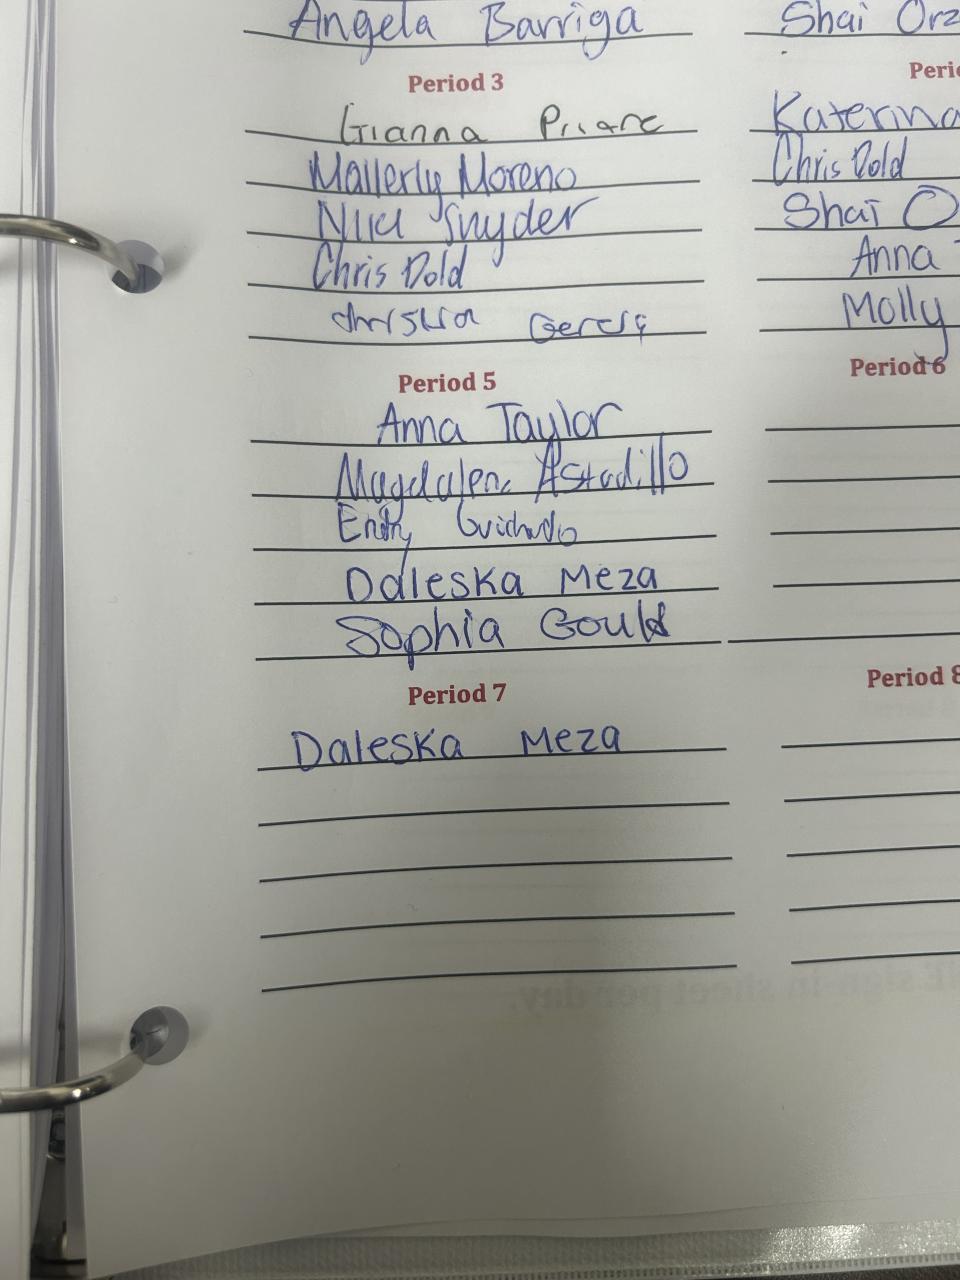 Angela Barriga
Shai Orz
Period 3
Gianna
Mallerly Moreno
Nuci Snyder
Chris Dold
Period 5
Anna Taylor
Magdalena Astadillo
Daleska Meza
Sophia Gould
Period 7
Daleska Meza
Perio
Katerina
Chris Dold
Shai O
Anna T
Molly
Period 6
Period 8
sign-in sheet per day.